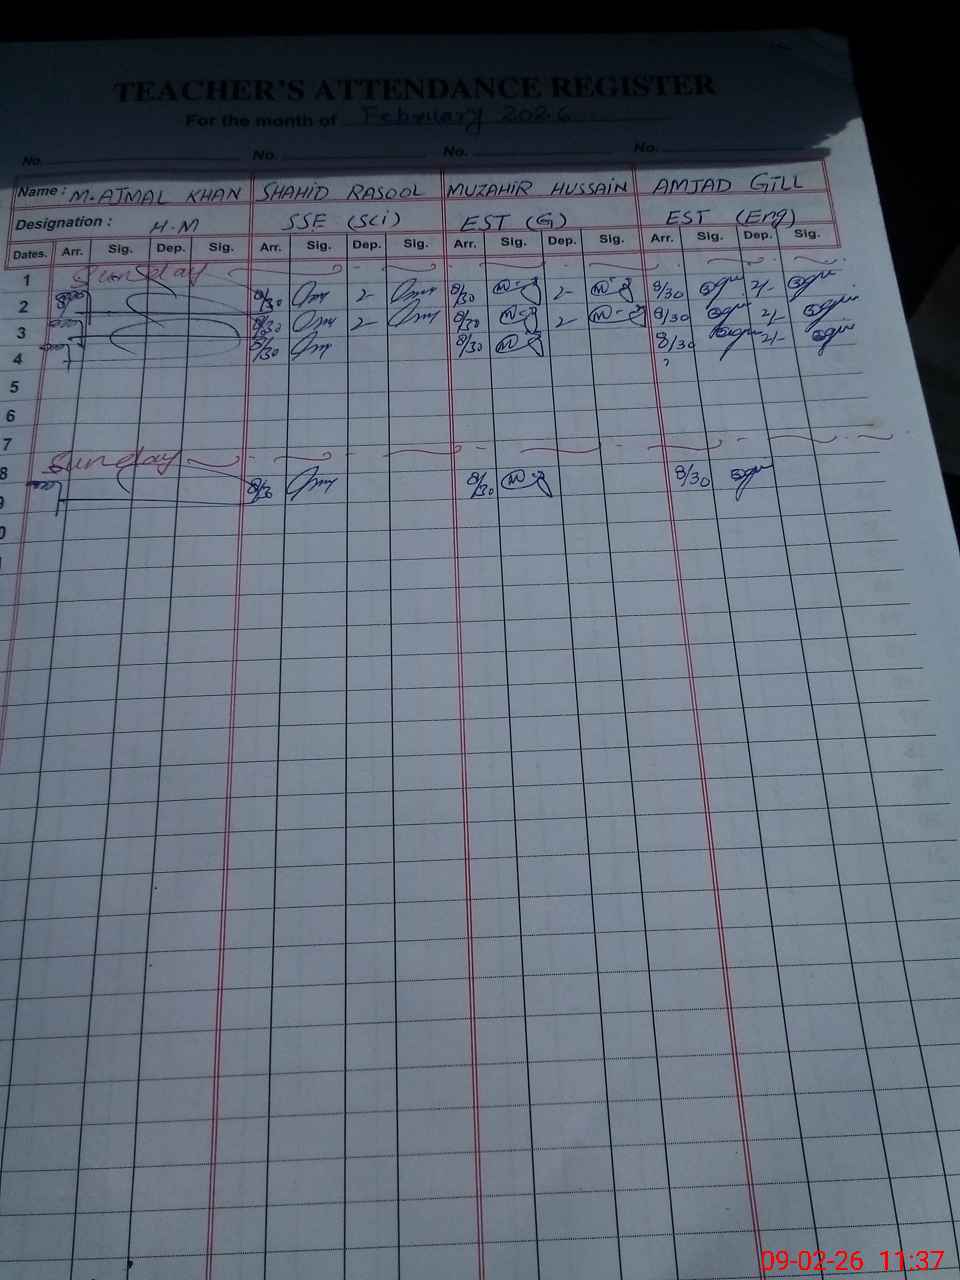 TEACHER'S ATTENDANCE REGISTER
For the month of February 2026
No. No. No. No.
Name: M. AJMAL KHAN SHAHID RASOOL MUZAHIR HUSSAIN AMJAD GILL
Designation: H.M SSE (Sci) EST (G) EST (Eng)
Dates. Arr. Sig. Dep. Sig. Arr. Sig. Dep. Sig. Arr. Sig. Dep. Sig. Arr. Sig. Dep. Sig.
1 Sunday
2 8/30 2- 8/30 2- 8/30 2/-
3 8/30 2- 8/30 2- 8/30 2/-
4 8/30 8/30 8/30 2/-
5
6
7
8 Sunday
9 8/30 8/30 8/30
0
09-02-26 11:37